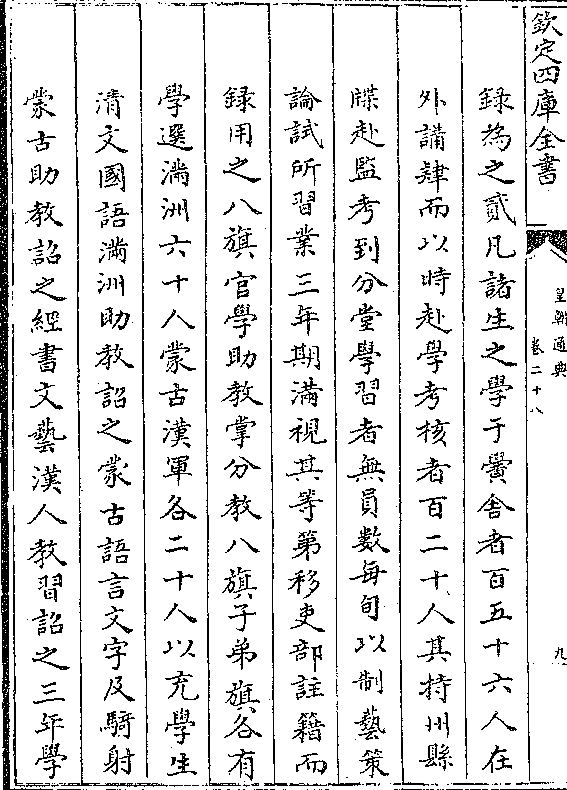 欽定四庫全書
皇朝通典
卷二十八
九
録為之貳凡諸生之學于黌舍者百五十六人在
外講肄而以時赴學考核者百二十人其持州縣
牒赴監考到分堂學習者無員數每旬以制藝策
論試所習業三年期滿視其等第移吏部註籍而
録用之八旗官學助教掌分教八旗子弟旗各有
學選滿洲六十人蒙古漢軍各二十人以充學生
清文國語滿洲助教詔之蒙古語言文字及騎射
蒙古助教詔之經書文藝漢人教習詔之三年學